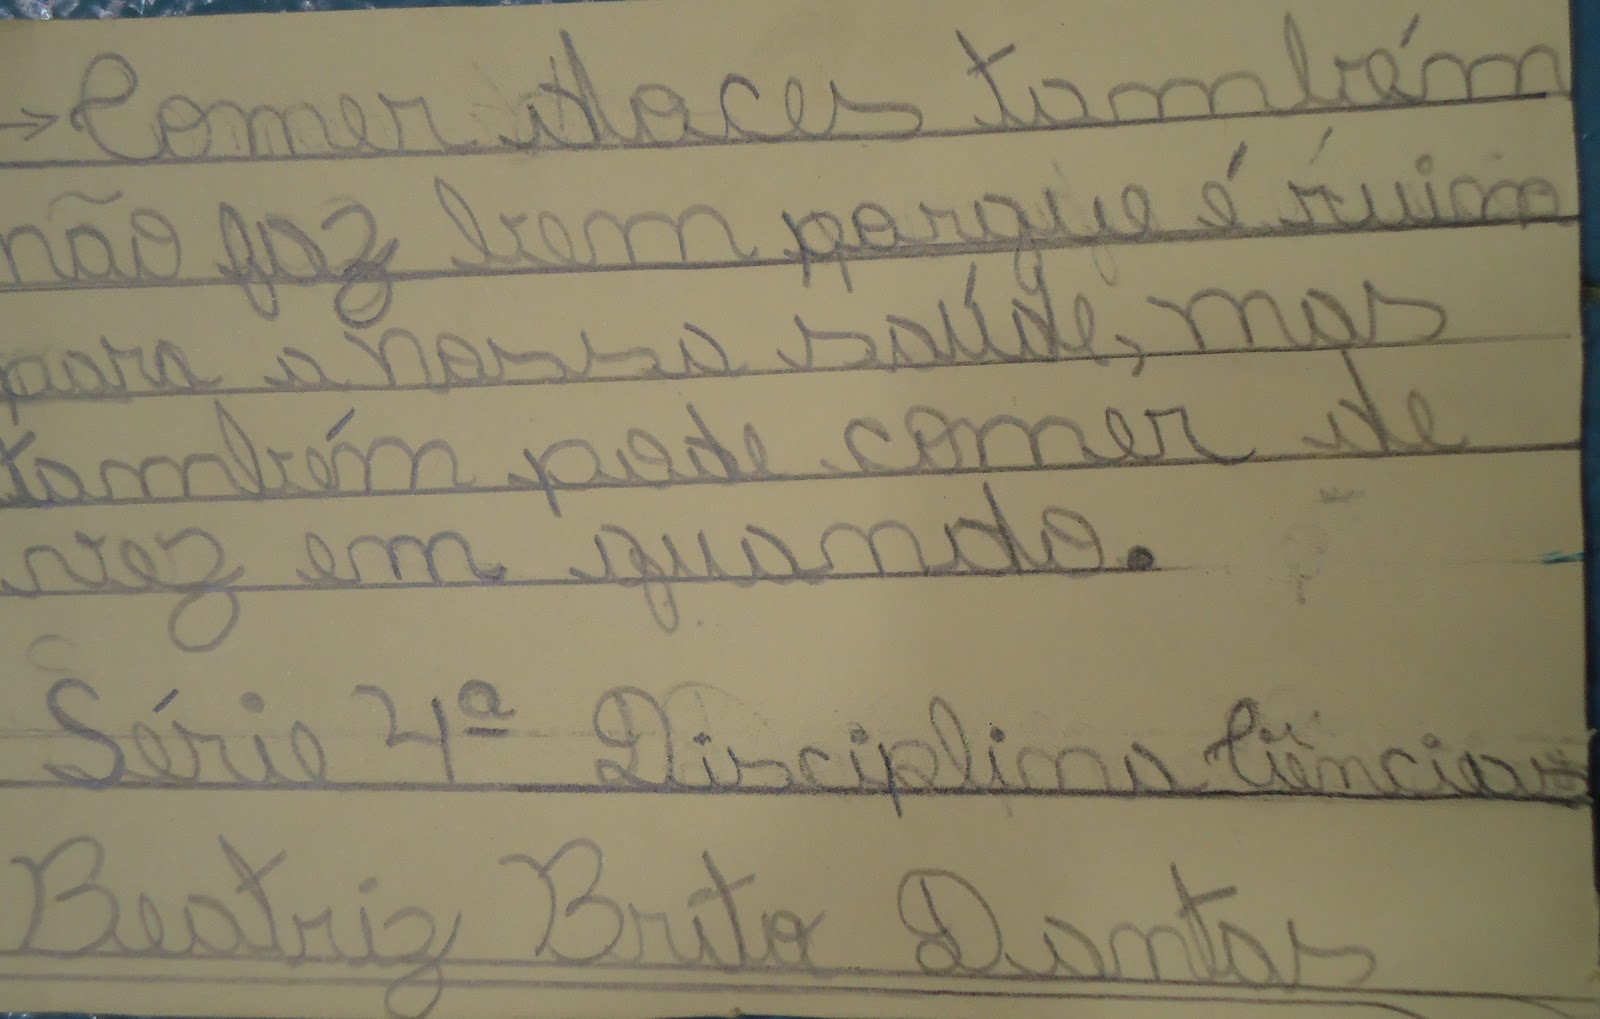 → Comer doces também
não faz bem porque é ruim
para a nossa saúde, mas
também pode comer de
vez em quando.
Série 4ª Disciplina Ciências
Beatriz Brito Dantas